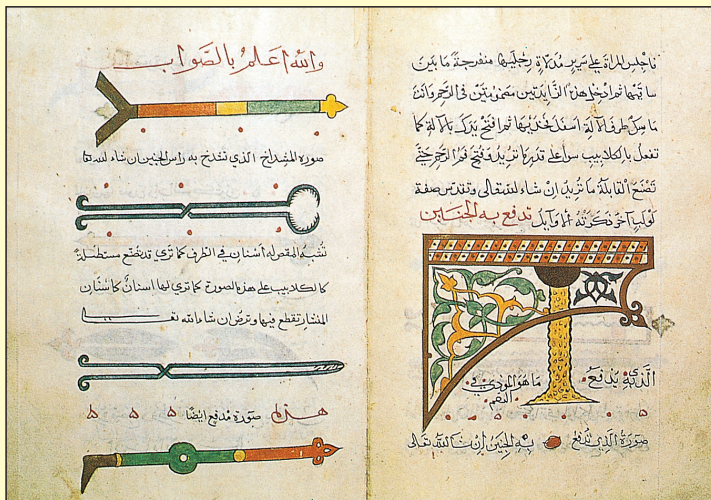 فاجلس المراة على سرير مدلاة رجليها منفرجة ما بين
ساقيها ثم ادخل هذه الزايدتين مضمومتين في الرحم وانت
ماسك طرف الآلة اسفل فخذيها ثم افتح يدك بالآلة كما
تفعل بالكلاليب سوآ على قدر ما تريد فتح فم الرحم حتى
تصنع القابلة ما تريد ان شاء الله تعالى وتقدس صفة
لولب آخر ذكرته الاوايل تدفع به الجنين
ما هو الموذي في
يدفع
صورة الذي تدفع به الجنين ان شا الله تعالى
والله اعلم بالصَّواب
صورة المشداخ الذي تشدخ به راس الجنين ان شاء لله تعا
تشبه المقص له اسنان في الطرف كما تري وقد تصنع مستطيلة
كالكلاليب على هذه الصورة كما تري لها اسنان كاسنان
المنشار تقطع فيها وترض ان شاء الله تعا
هذه صورة مدفع ايضا